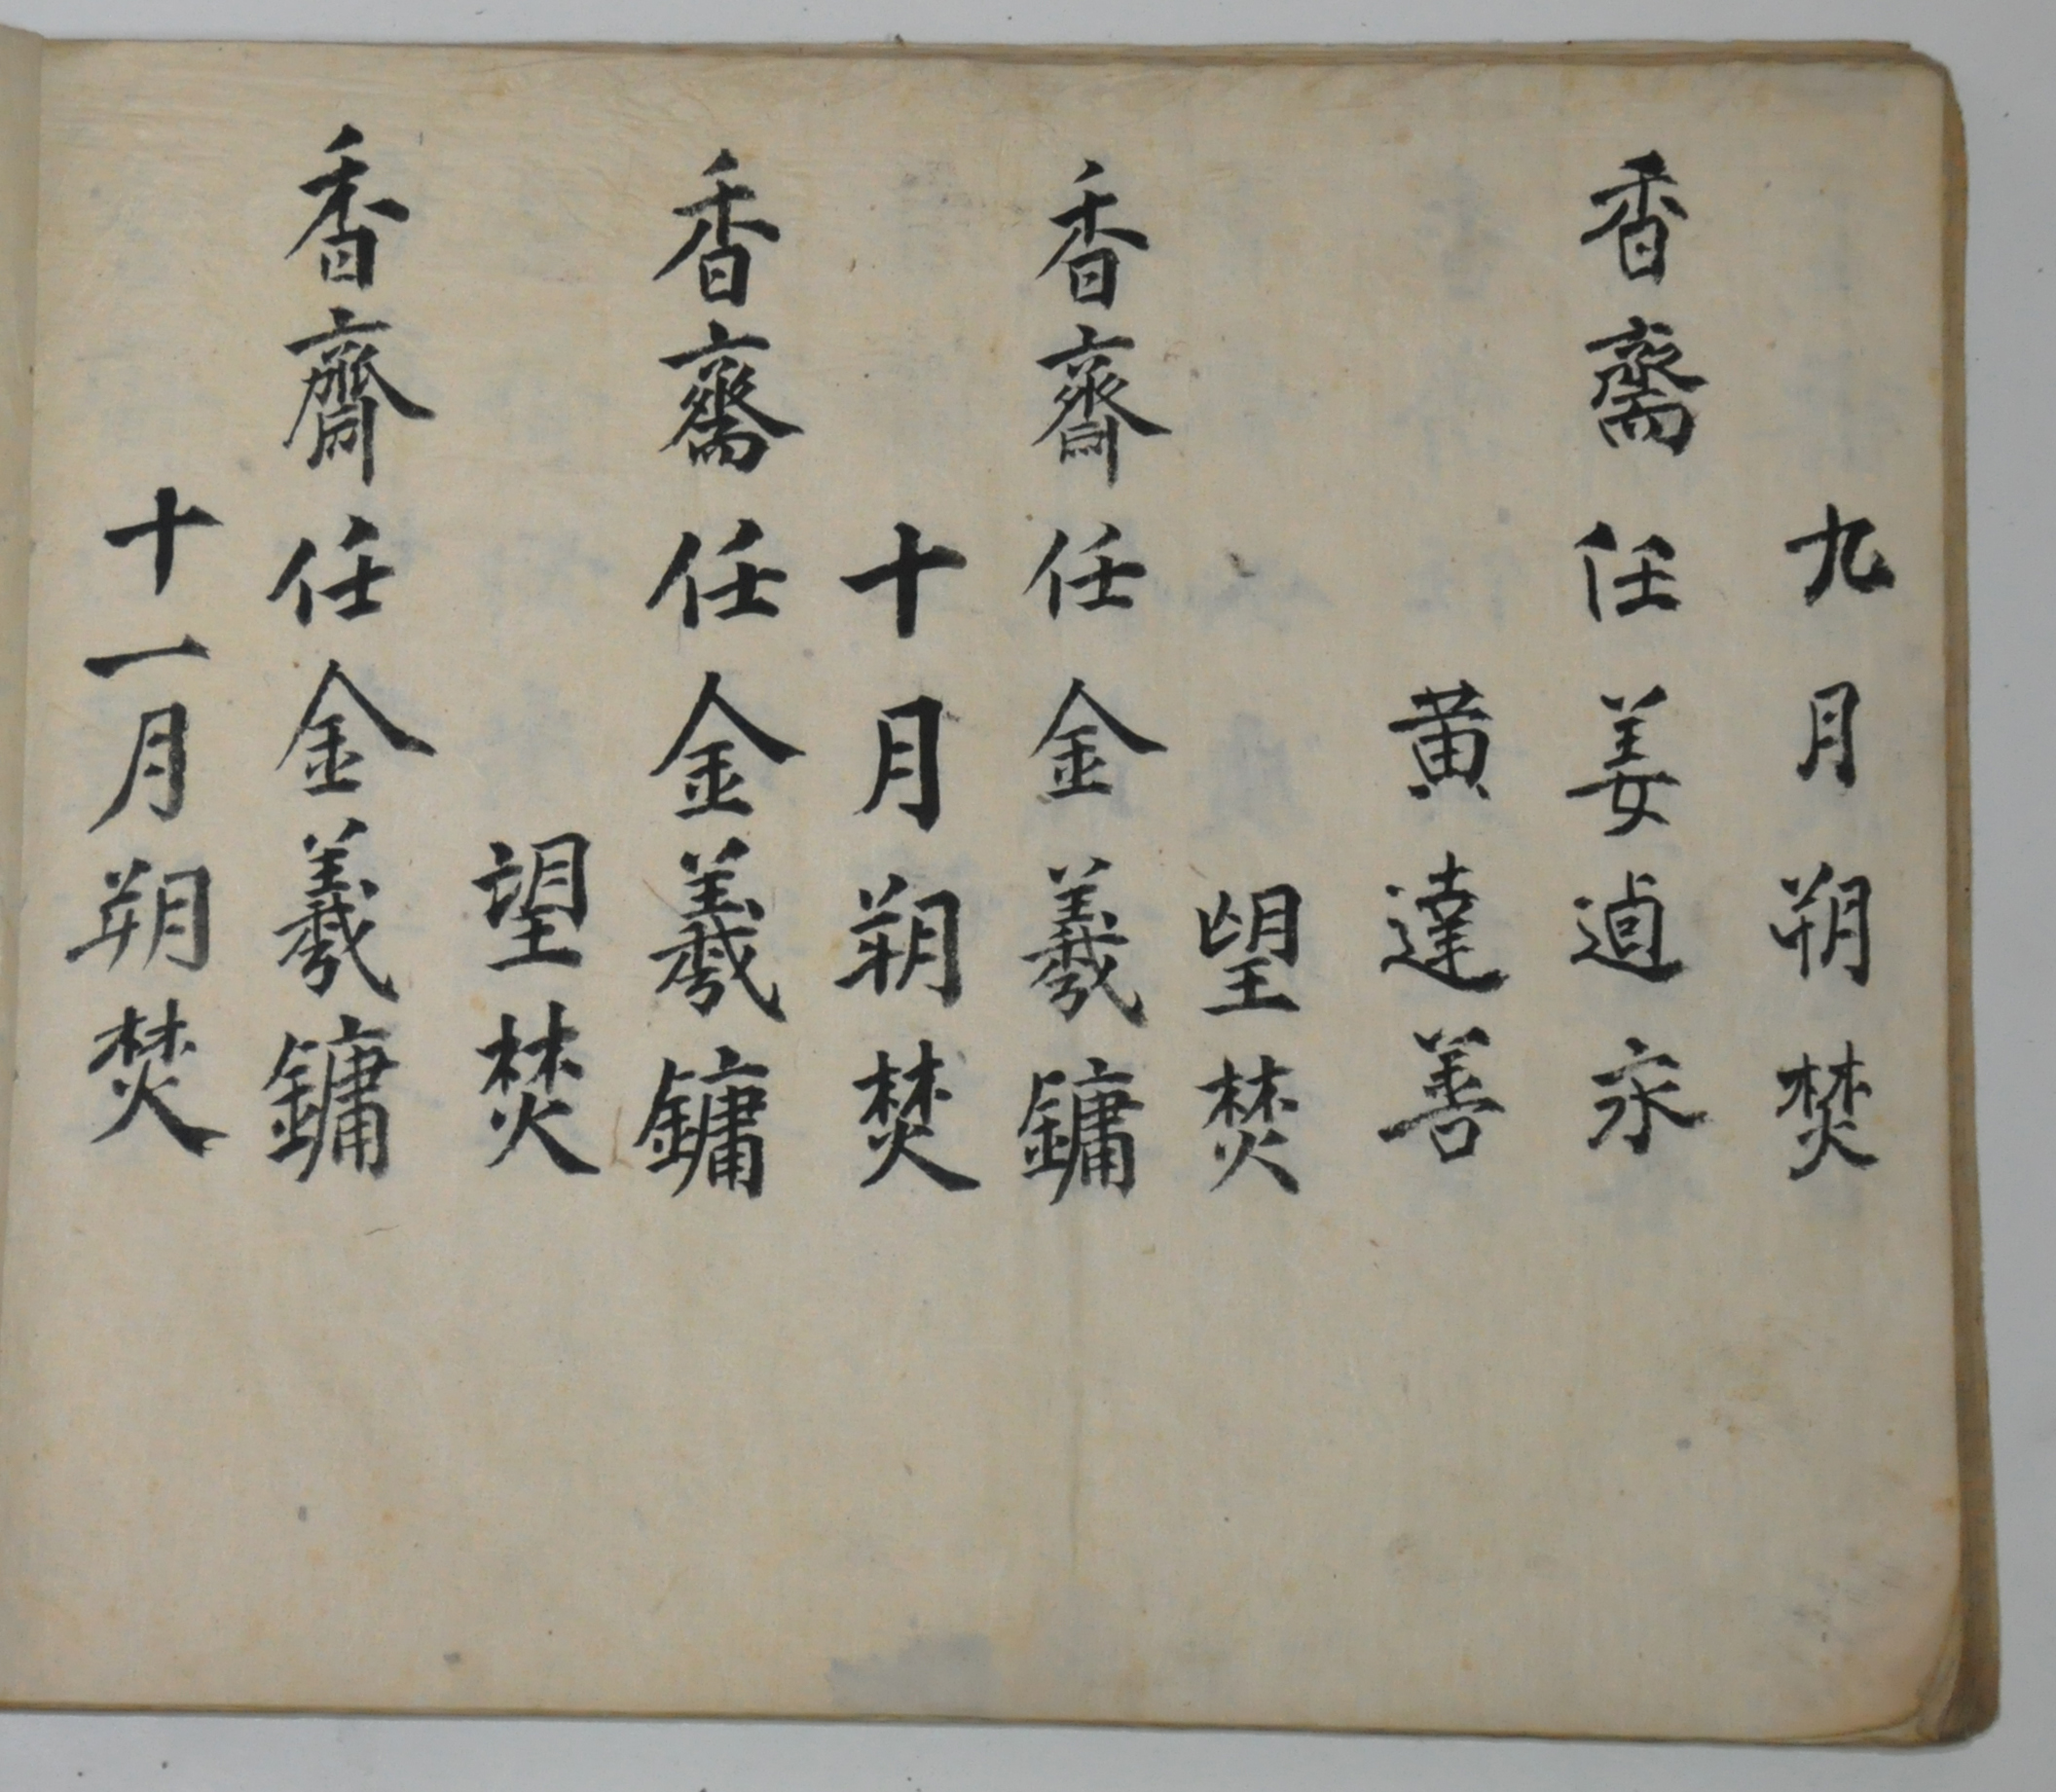 九月朔焚
香齋任姜逌永
黄達善
望焚
香齋任金羲鏞
十月朔焚
香齋任金羲鏞
望焚
香齋任金羲鏞
十一月朔焚